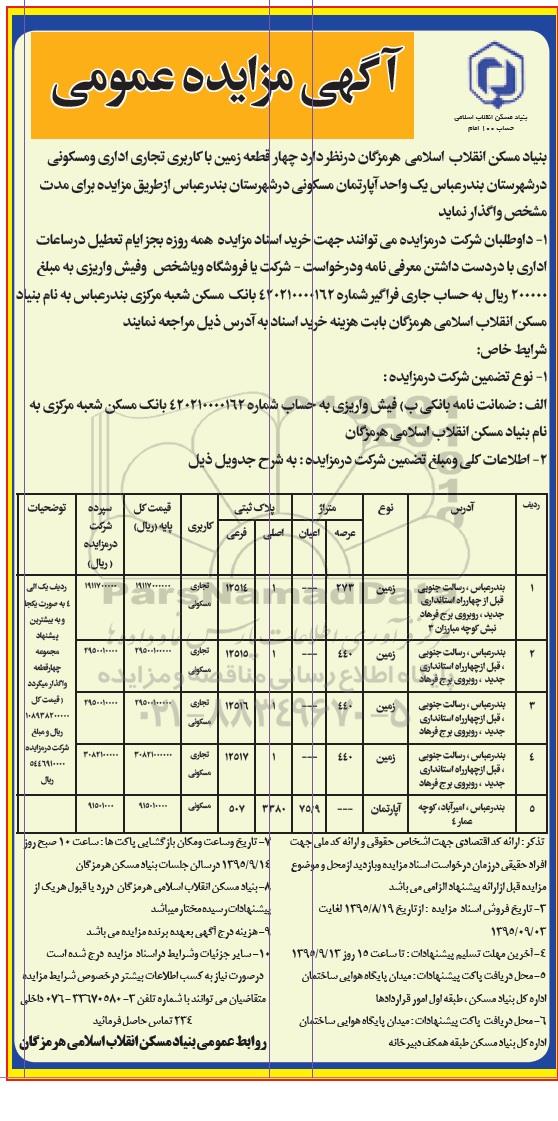 آگهی مزایده عمومی
بنیاد مسکن انقلاب اسلامی
حساب ۱۰۰ امام
بنیاد مسکن انقلاب اسلامی هرمزگان درنظردارد چهار قطعه زمین با کاربری تجاری اداری ومسکونی
درشهرستان بندرعباس یک واحد آپارتمان مسکونی درشهرستان بندرعباس ازطریق مزایده برای مدت
مشخص واگذار نماید
۱- داوطلبان شرکت درمزایده می توانند جهت خرید اسناد مزایده همه روزه بجز ایام تعطیل درساعات
اداری با دردست داشتن معرفی نامه ودرخواست - شرکت یا فروشگاه ویاشخص وفیش واریزی به مبلغ
۲۰۰۰۰۰ ریال به حساب جاری فراگیر شماره ۴۲۰۲۱۰۰۰۰۱۶۲ بانک مسکن شعبه مرکزی بندرعباس به نام بنیاد
مسکن انقلاب اسلامی هرمزگان بابت هزینه خرید اسناد به آدرس ذیل مراجعه نمایند
شرایط خاص:
۱- نوع تضمین شرکت درمزایده :
الف : ضمانت نامه بانکی ب) فیش واریزی به حساب شماره ۴۲۰۲۱۰۰۰۰۱۶۲ بانک مسکن شعبه مرکزی به
نام بنیاد مسکن انقلاب اسلامی هرمزگان
۲- اطلاعات کلی ومبلغ تضمین شرکت درمزایده : به شرح جدویل ذیل
ردیف آدرس نوع متراژ پلاک ثبتی کاربری قیمت کل پایه (ریال) سپرده شرکت درمزایده (ریال) توضحیات
عرصه اعیان اصلی فرعی
۱ بندرعباس ، رسالت جنوبی قبل از چهارراه استانداری جدید ، روبروی برج فرهاد نبش کوچه مبارزان ۳ زمین ۲۷۳ --- ۱ ۱۲۵۱۴ تجاری مسکونی ۱۹۱۱۷۰۰۰۰۰۰ ۱۹۱۱۷۰۰۰۰۰
۲ بندرعباس ، رسالت جنوبی ، قبل ازچهارراه استانداری جدید ، روبروی برج فرهاد زمین ۴۴۰ --- ۱ ۱۲۵۱۵ تجاری مسکونی ۲۹۵۰۰۱۰۰۰۰۰ ۲۹۵۰۰۱۰۰۰۰
۳ بندرعباس ، رسالت جنوبی ، قبل ازچهارراه استانداری جدید ، روبروی برج فرهاد زمین ۴۴۰ --- ۱ ۱۲۵۱۶ تجاری مسکونی ۲۹۵۰۰۱۰۰۰۰۰ ۲۹۵۰۰۱۰۰۰۰
۴ بندرعباس ، رسالت جنوبی ، قبل ازچهارراه استانداری جدید ، روبروی برج فرهاد زمین ۴۴۰ --- ۱ ۱۲۵۱۷ تجاری مسکونی ۳۰۸۲۱۰۰۰۰۰۰ ۳۰۸۲۱۰۰۰۰۰
۵ بندرعباس ، امیرآباد، کوچه عمار ۴ آپارتمان --- ۷۵/۹ ۳۳۸۰ ۵۰۷ مسکونی ۹۱۵۰۱۰۰۰۰ ۹۱۵۰۱۰۰۰
ردیف یک الی ۴ به صورت یکجا و به بیشترین پیشنهاد مجموعه چهارقطعه واگذار میگردد ( قیمت کل ۱۰۸۹۳۸۲۰۰۰۰۰ ریال و مبلغ شرکت درمزایده ۵۴۴۶۹۱۰۰۰۰ ریال
تذکر : ارائه کد اقتصادی جهت اشخاص حقوقی و ارائه کد ملی جهت
افراد حقیقی درزمان درخواست اسناد مزایده وبازدید ازمحل وموضوع
مزایده قبل ازارائه پیشنهاد الزامی می باشد
۳- تاریخ فروش اسناد مزایده : از تاریخ ۱۳۹۵/۸/۱۹ لغایت
۱۳۹۵/۰۹/۰۳
۴- آخرین مهلت تسلیم پیشنهادات : تا ساعت ۱۵ روز ۱۳۹۵/۹/۱۳
۵- محل دریافت پاکت پیشنهادات : میدان پایگاه هوایی ساختمان
اداره کل بنیاد مسکن ، طبقه اول امور قراردادها
۶- محل دریافت پاکت پیشنهادات : میدان پایگاه هوایی ساختمان
اداره کل بنیاد مسکن طبقه همکف دبیرخانه
۷- تاریخ وساعت ومکان بازگشایی پاکت ها : ساعت ۱۰ صبح روز
۱۳۹۵/۹/۱۴ درسالن جلسات بنیاد مسکن هرمزگان
۸- بنیاد مسکن انقلاب اسلامی هرمزگان دررد یا قبول هریک از
پیشنهادات رسیده مختار میباشد
۹- هزینه درج آگهی بعهده برنده مزایده می باشد
۱۰- سایر جزئیات وشرایط دراسناد مزایده درج شده است
درصورت نیاز به کسب اطلاعات بیشتر درخصوص شرایط مزایده
متقاضیان می توانند با شماره تلفن ۳-۳۳۶۷۰۵۸۰-۰۷۶ داخلی
۲۳۴ تماس حاصل فرمائید
روابط عمومی بنیاد مسکن انقلاب اسلامی هرمزگان
ParsNamadData
پایگاه اطلاع رسانی مناقصه و مزایده
۰۲۱-۸۸۳۴۹۶۷۰-۵